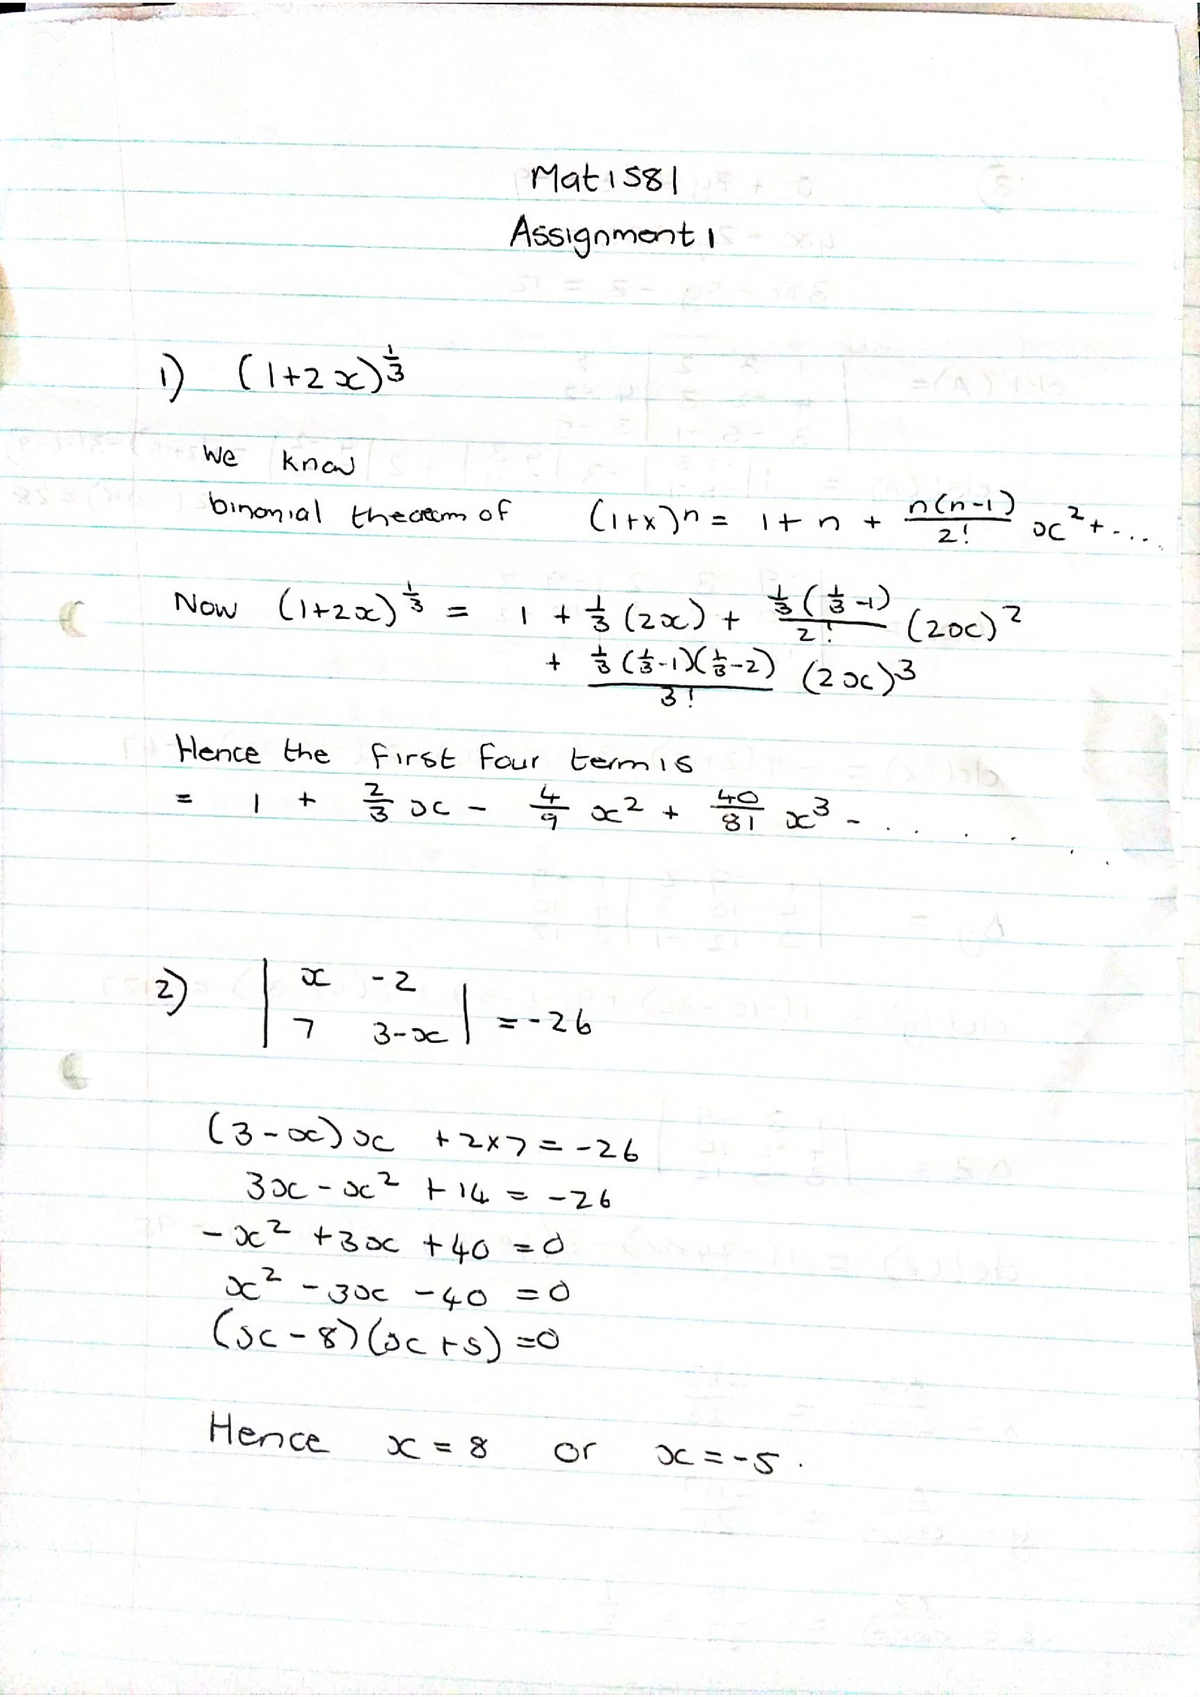 Mat1581
Assignment 1
1) (1+2x)^{1/3}
We know
binomial theorem of (1+x)^n = 1 + n + n(n-1)/2! x^2 + ....
Now (1+2x)^{1/3} = 1 + 1/3 (2x) + 1/3(1/3 -1)/2! (2x)^2
+ 1/3(1/3-1)(1/3-2)/3! (2x)^3
Hence the first four term is
= 1 + 2/3 x - 4/9 x^2 + 40/81 x^3 - ......
2) | x -2
| 7 3-x | = -26
(3-x)x + 2×7 = -26
3x - x^2 + 14 = -26
-x^2 + 3x + 40 = 0
x^2 - 3x - 40 = 0
(x-8)(x+5) = 0
Hence x = 8 or x = -5.